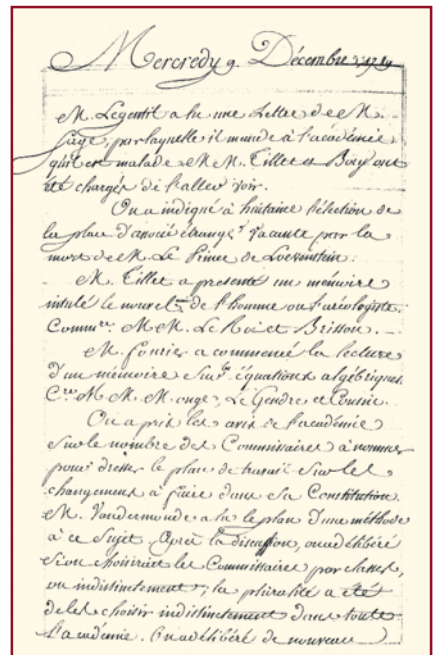 Mercredy 9. Décembre 1789
M. Legentil a lu une Lettre de M.
Sage, par laquelle il mande à l'académie
qu'il est malade. MM. Tillet et Bory ont
été chargés de l'aller voir.
On a indiqué à huitaine l'élection de
la place d'associé étranger vacante par la
mort de M. Le Prince de Loewenstein.
M. Tillet a présenté un mémoire
intitulé le nouvel de l'homme ou l'aéologiste.
Comm.res MM. Le Roi et Brisson.
M. fourier a commencé la lecture
d'un mémoire sur les équations algébriques.
C.res MM. Monge, Le Gendre et Cousin.
On a pris les avis de l'académie
sur le nombre des Commissaires à nommer
pour dresser le plan de travail sur les
changemens à faire dans sa Constitution.
M. Vandermonde a lu le plan d'une méthode
à ce sujet. Après la discussion, on a délibéré
si on choisirait les Commissaires par classes,
ou indistinctement; la pluralité a été
de les choisir indistinctement dans toute
L'académie. On a délibéré de nouveau